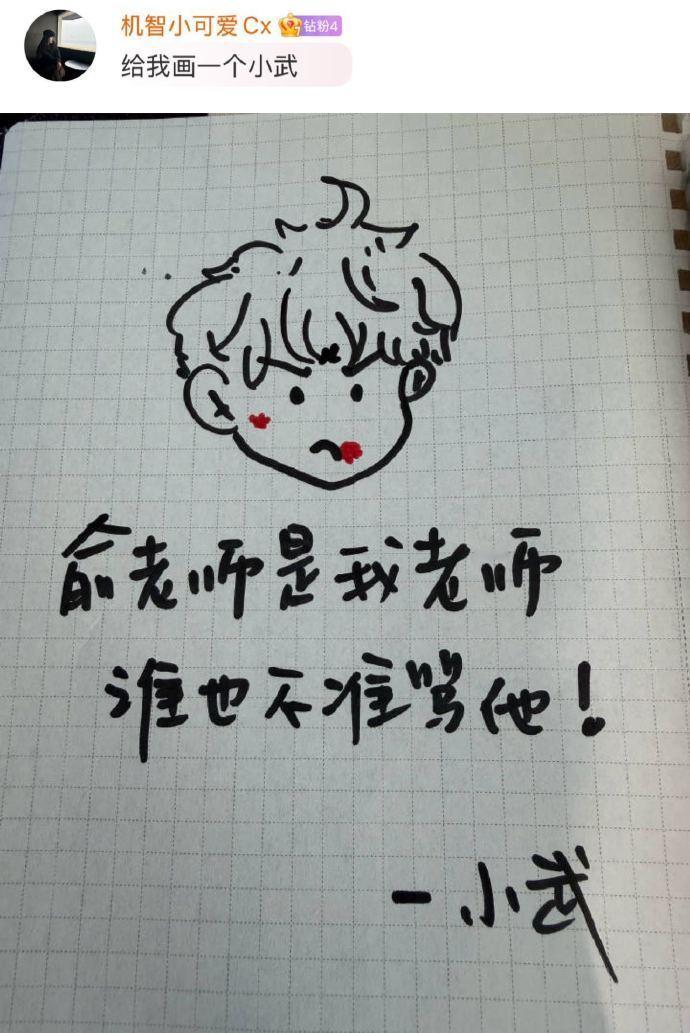 机智小可爱Cx 钻粉4
给我画一个小武
俞老师是我老师
谁也不准骂他！
－小武